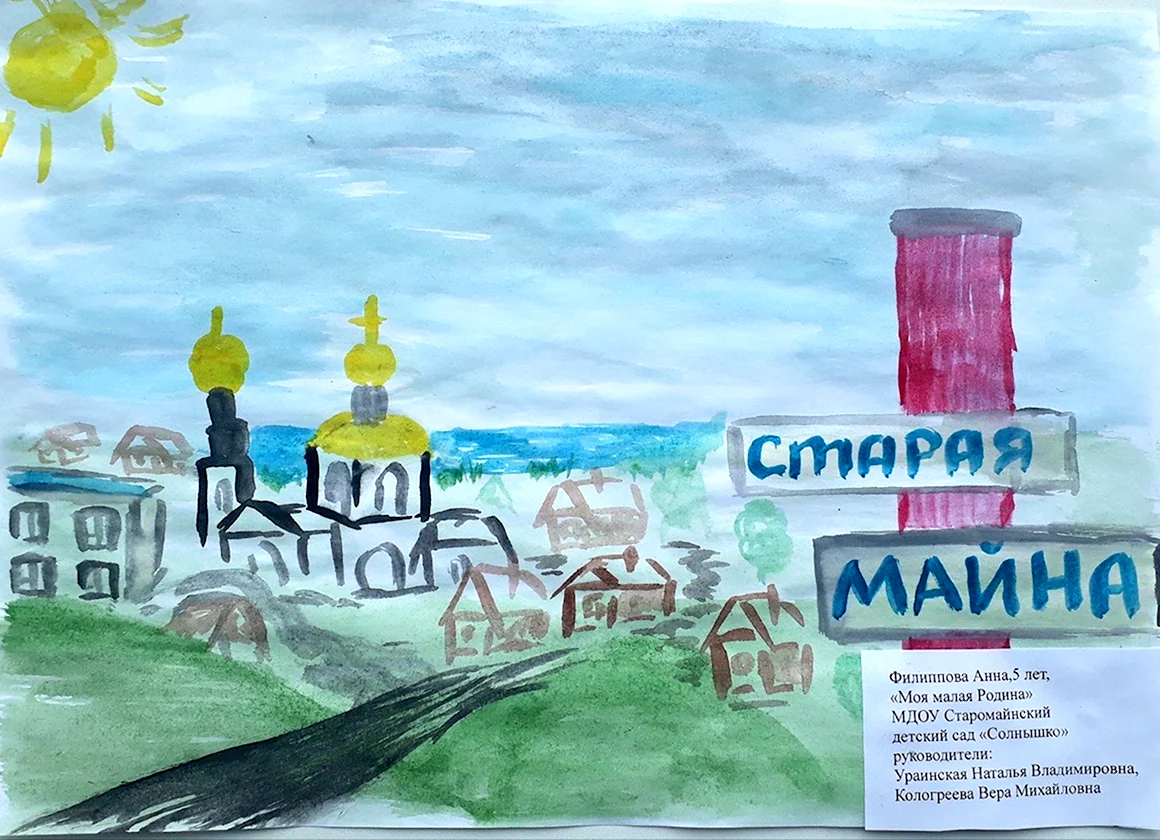 СТАРАЯ
МАЙНА
Филиппова Анна,5 лет,
«Моя малая Родина»
МДОУ Старомайнский
детский сад «Солнышко»
руководители:
Ураинская Наталья Владимировна,
Кологреева Вера Михайловна